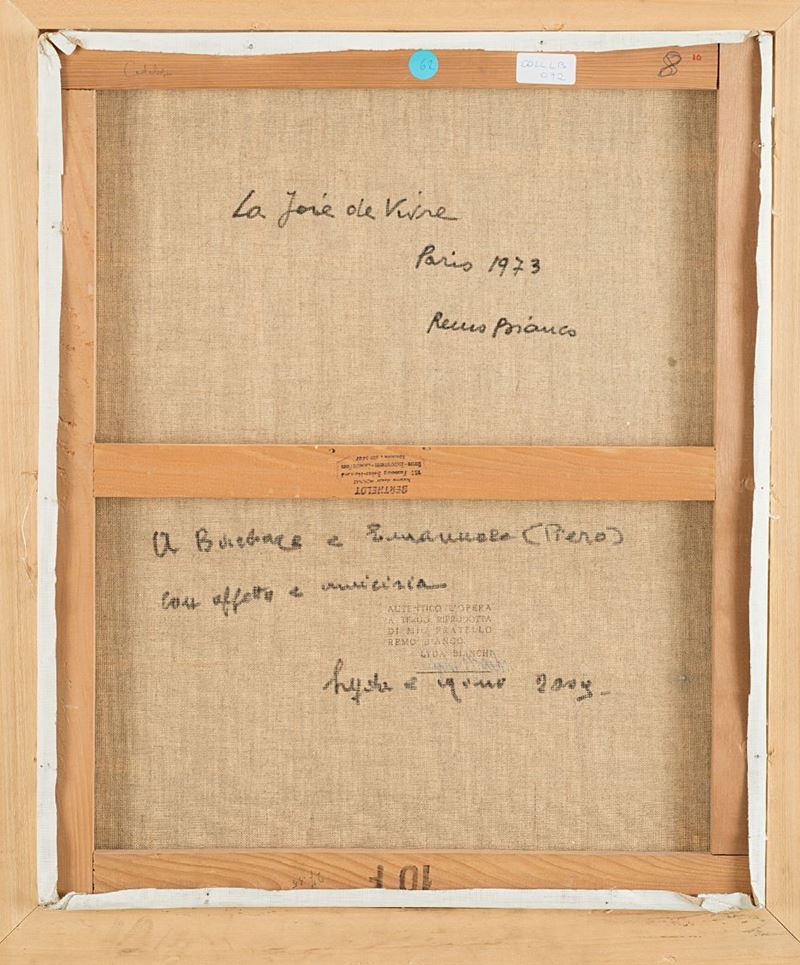 62
COLL LB
092
8
10
La Joie de Vivre
Paris 1973
Remo Bianco
BERTHELOT
A e Emanuele (Piero)
con affetto e amicizia
AUTENTICO L'OPERA
A TERGO RIPRODOTTA
DI MIO FRATELLO
REMO BIANCO
LYDA BIANCHI
Lyda e
10 F